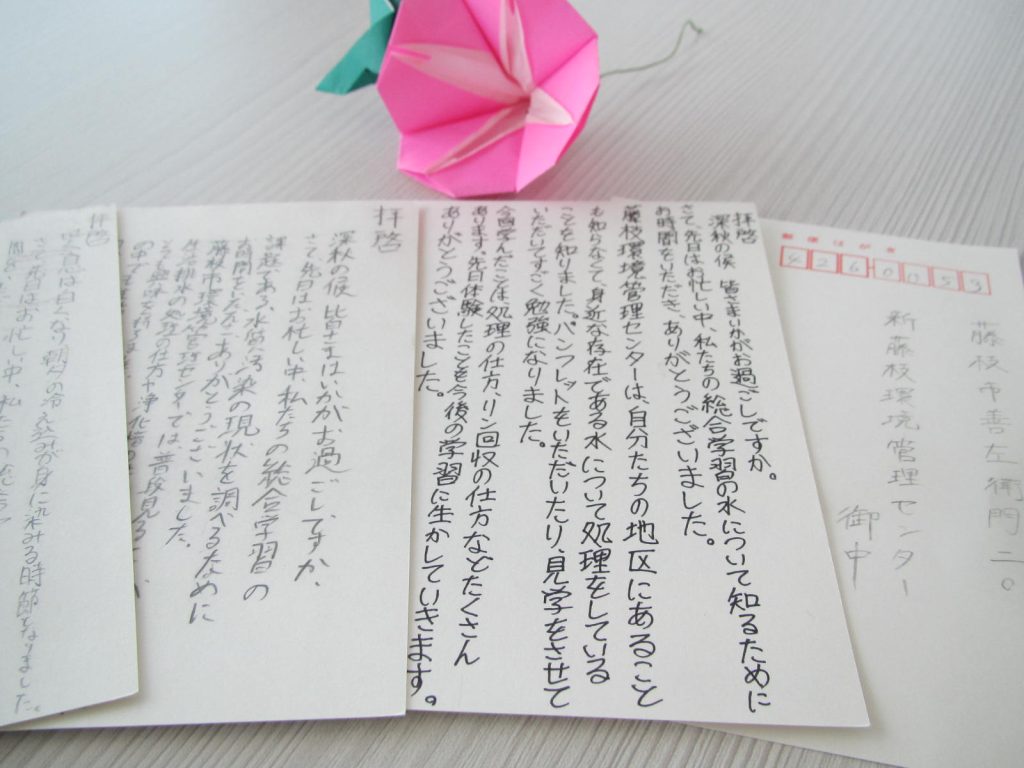 郵便はがき
426-0053
藤枝市善左衛門二〇
新藤枝環境管理センター
御中
拝啓
深秋の候 皆さまいかがお過ごしですか。
さて先日はお忙しい中、私たちの総合学習の水について知るために
お時間をいただき、ありがとうございました。
藤枝環境管理センターは、自分たちの地区にあること
も知らなくて、身近な存在である水について処理をしている
ことを知りました。パンフレットをいただいたり、見学をさせて
いただいてすごく勉強になりました。
今回学んだことは、処理の仕方、リン回収の仕方などたくさん
あります。先日体験したことを今後の学習に生かしていきます。
ありがとうございました。
拝啓
深秋の候 皆さまはいかがお過ごしですか、
さて先日はお忙しい中、私たちの総合学習の
課題である、水質汚染の現状を調べるために
お時間をとっていただき、ありがとうございました。
藤枝市環境管理センターでは普段見ることが
拝啓
息は白くなり、朝夕の冷え込みが身に染みる時節になりました。
さて先日はお忙しい中、私たちの総合